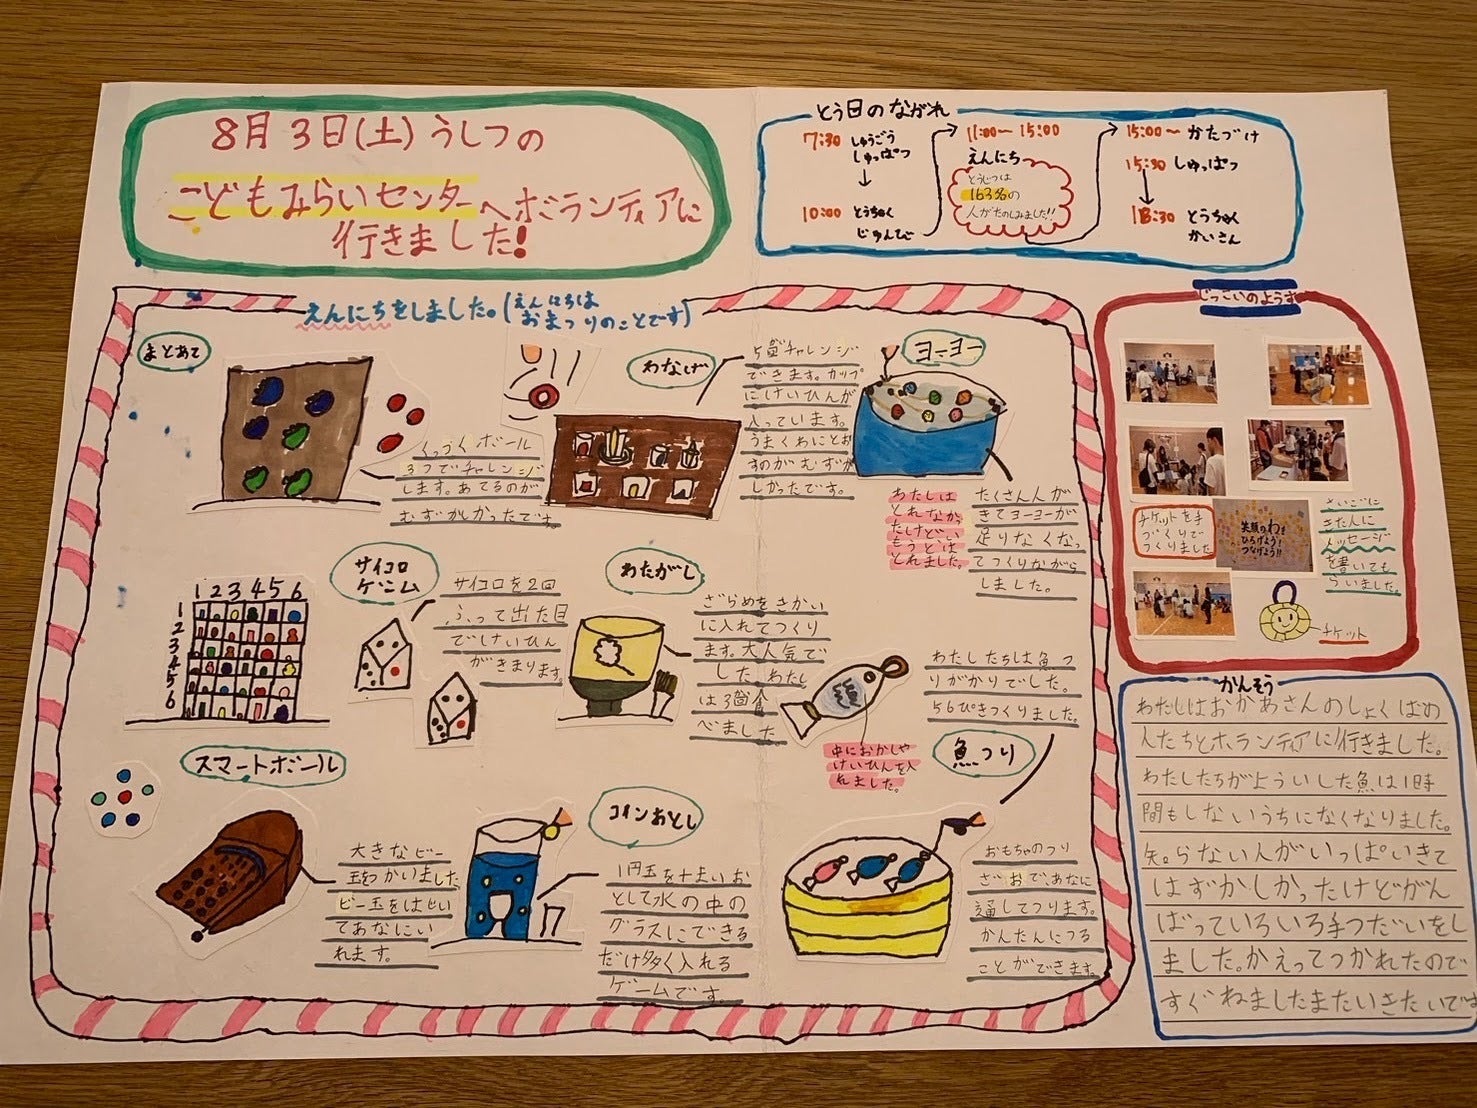 8月3日(土)うしつの
こどもみらいセンターへボランティアに
行きました!
とう日のながれ
7:30 しゅうごう
しゅっぱつ
10:00 とうちゃく
じゅんび
11:00〜15:00
えんにち
とうじつは
163名の
人がたのしみました!!
15:00〜かたづけ
15:30 しゅっぱつ
18:30 とうちゃく
かいさん
えんにちをしました。(えんにちは
おまつりのことです)
まとあて
くっつくボール
3つでチャレンジ
します。あてるのが
むずかしかったです。
わなげ
5回チャレンジ
できます。カップ
にけいひんが
入っています。
うまくわにとお
すのがむずか
しかったです。
ヨーヨー
わたしは
とれなかっ
たけどい
もうとは
とれました。
たくさん人が
きてヨーヨーが
足りなくなっ
てつくりながら
しました。
サイコロ
ゲーム
1 2 3 4 5 6
1
2
3
4
5
6
サイコロを2回
ふって出た目
でけいひん
がきまります。
わたがし
ざらめをきかい
に入れてつくり
ます。大人気で
した。わたし
は3箇食
べました
わたしたちは魚つ
りがかりでした。
56ぴきつくりました。
魚つり
中におかしや
けいひんを入
れました。
おもちゃのつり
ざおで、あなに
通してつります。
かんたんにつる
ことができます。
スマートボール
大きなビー
玉をつかいました。
ビー玉をはじい
てあなにい
れます。
コインおとし
1円玉を十まいお
として水の中の
グラスにできる
だけ多く入れる
ゲームです。
じっこいのようす
チケットを手
づくりで
つくりました
笑顔のわを
ひろげよう!
つなげよう!!
さいごに
きた人に
メッセージ
を書いても
らいました。
チケット
かんそう
わたしはおかあさんのしょくばの
人たちとホランティアに行きました。
わたしたちがよういした魚は1時
間もしないうちになくなりました。
知らない人がいっぱいきて
はずかしかったけどがん
ばっていろいろ手つだいをし
ました。かえってつかれたので
すぐねましたまたいきたいです